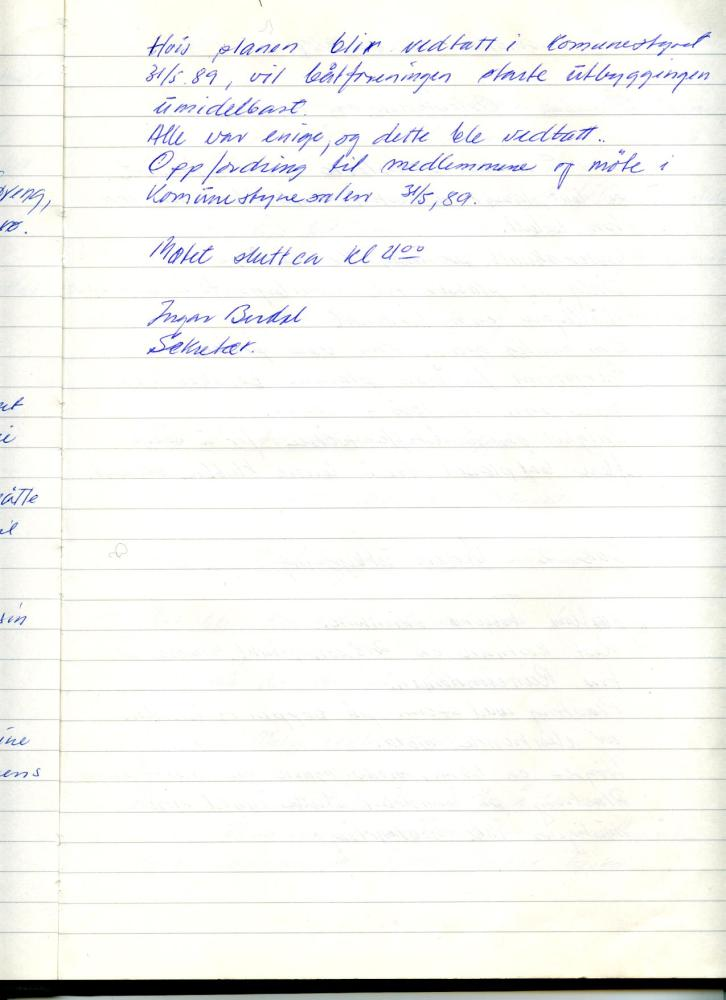 Hvis planen blir vedtatt i Komunestyret
31/5.89, vil båtforeningen starte utbyggingen
umidelbart.
Alle var enige, og dette ble vedtatt..
Oppfordring til medlemmene og møte i
Komunestyresalen 31/5, 89.
Møtet slutt ca kl 21⁰⁰
Ingar
Sekretær.